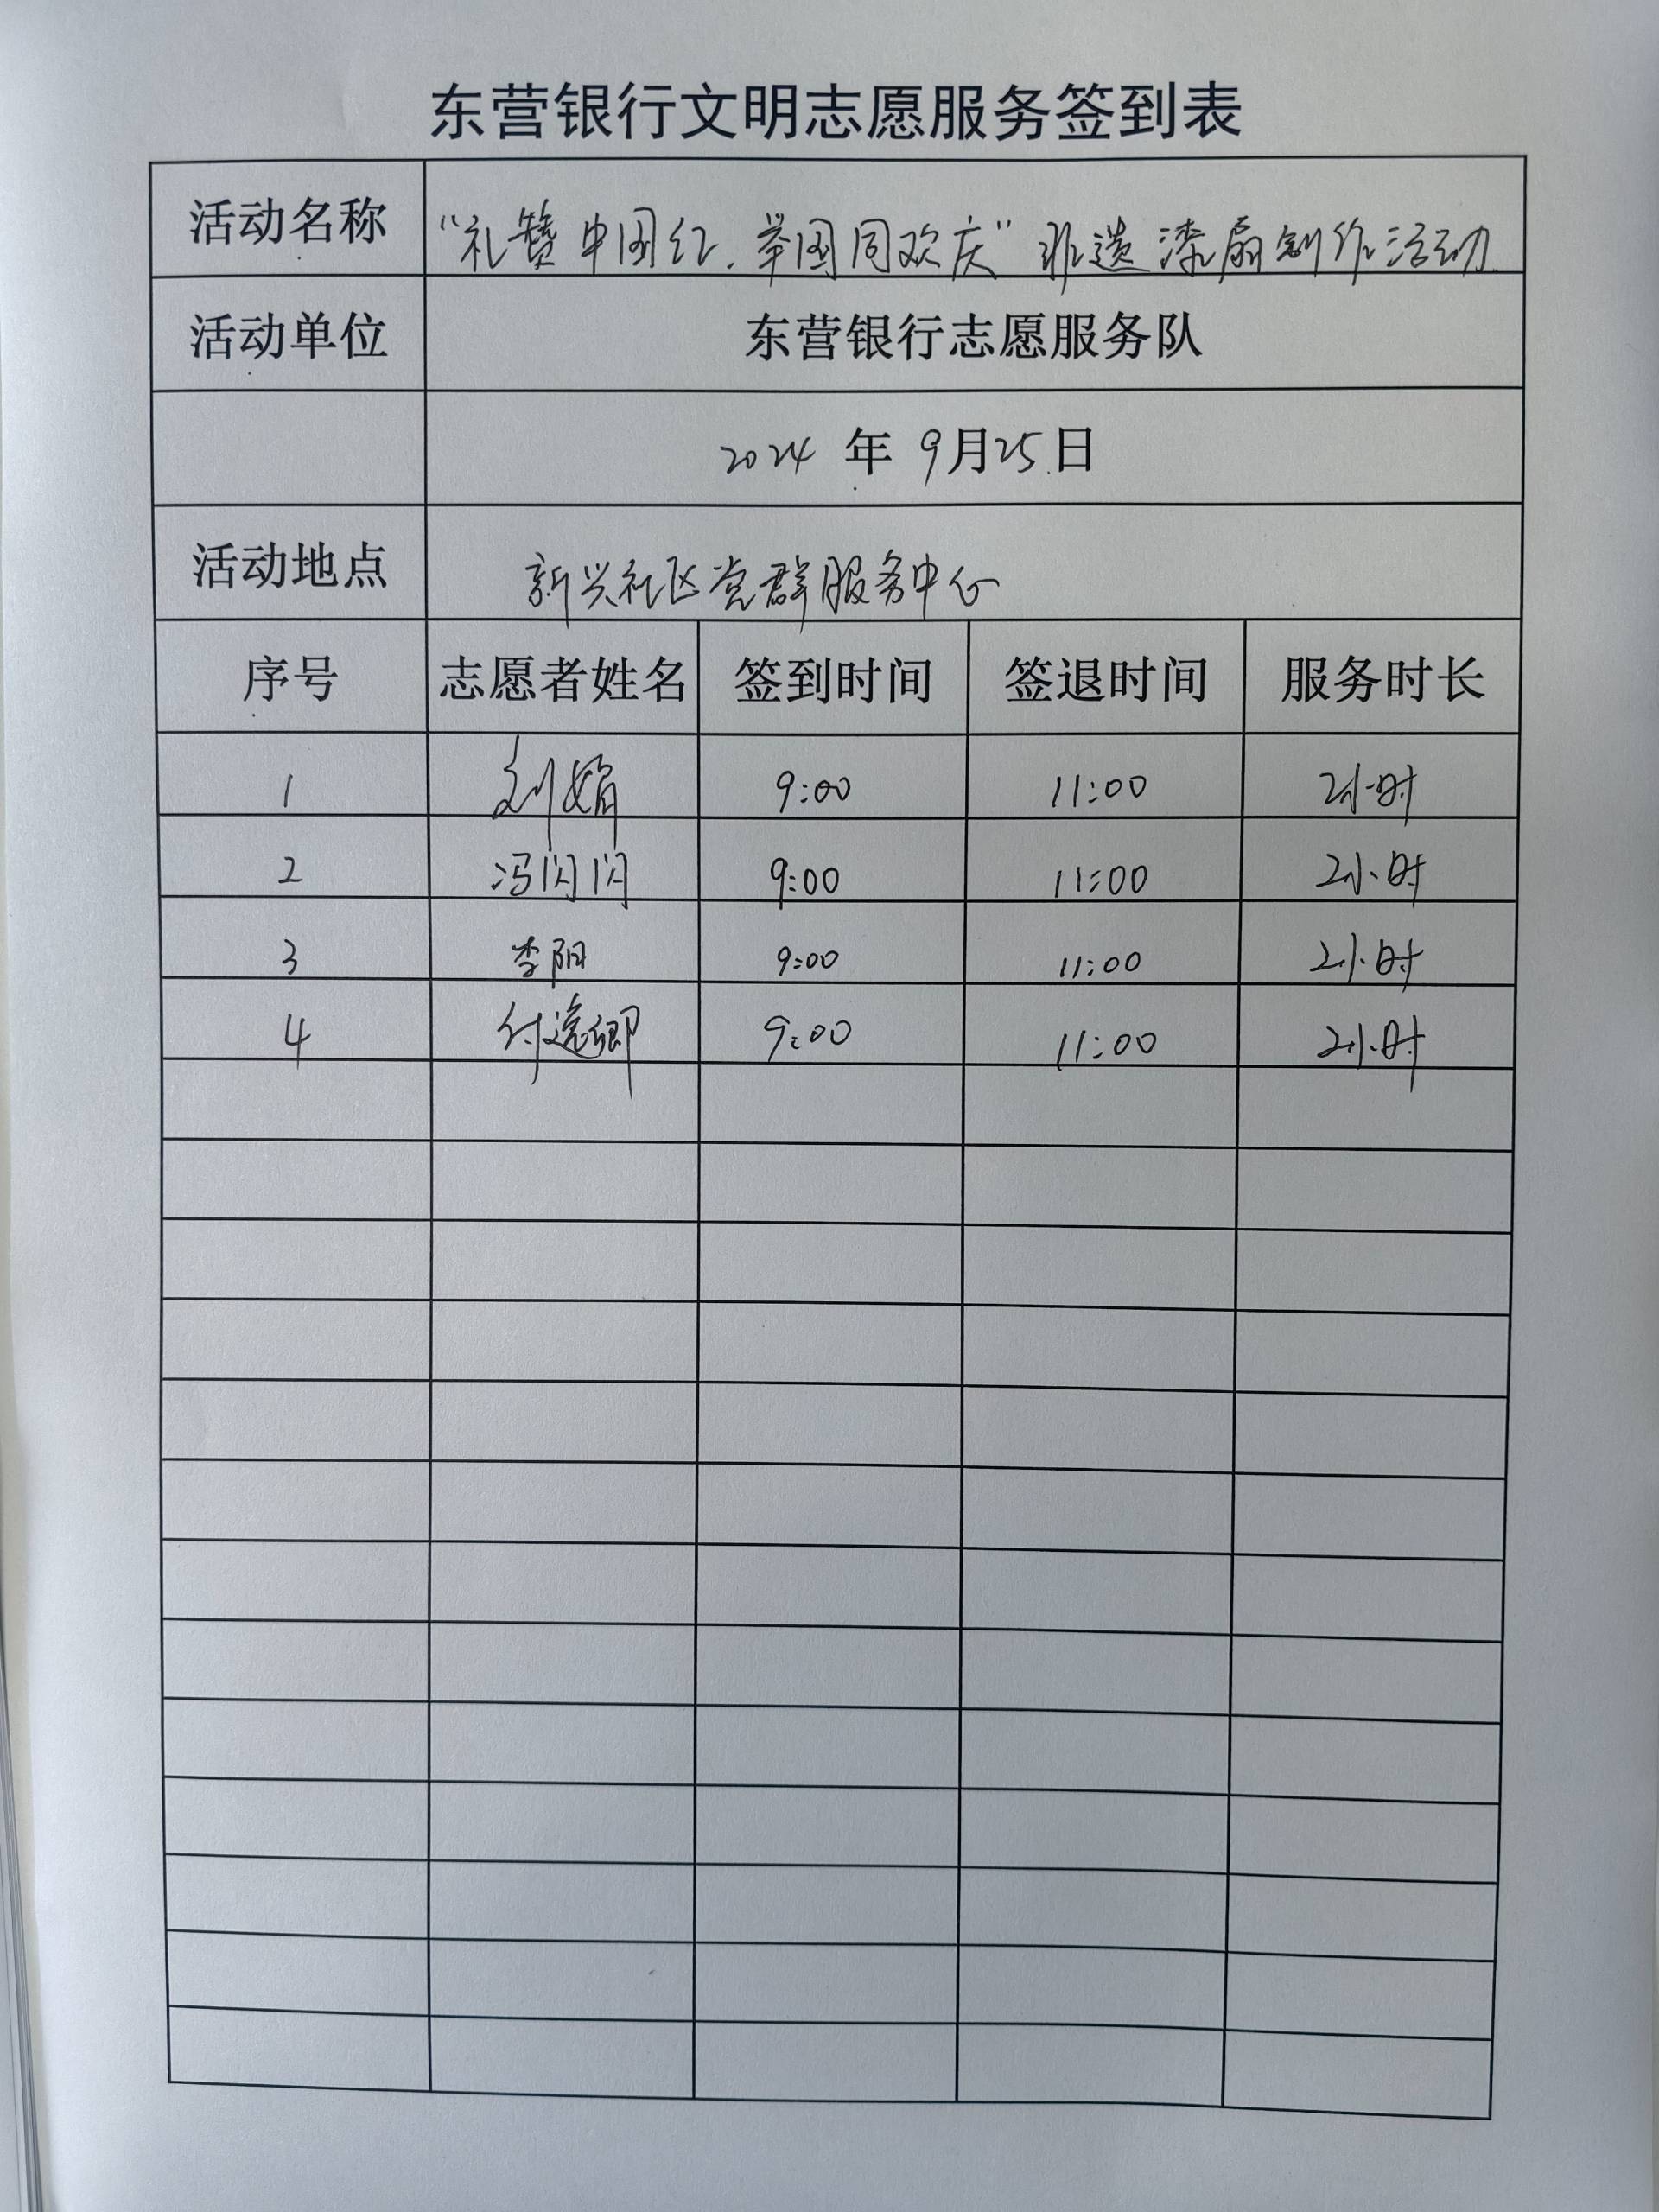 东营银行文明志愿服务签到表
活动名称 “礼赞中国红，举国同欢庆”非遗漆扇创作活动
活动单位 东营银行志愿服务队
2024 年 9月25日
活动地点 新兴社区党群服务中心
序号 志愿者姓名 签到时间 签退时间 服务时长
1 刘娟 9:00 11:00 2小时
2 冯闪闪 9:00 11:00 2小时
3 李阳 9:00 11:00 2小时
4 付逸卿 9:00 11:00 2小时